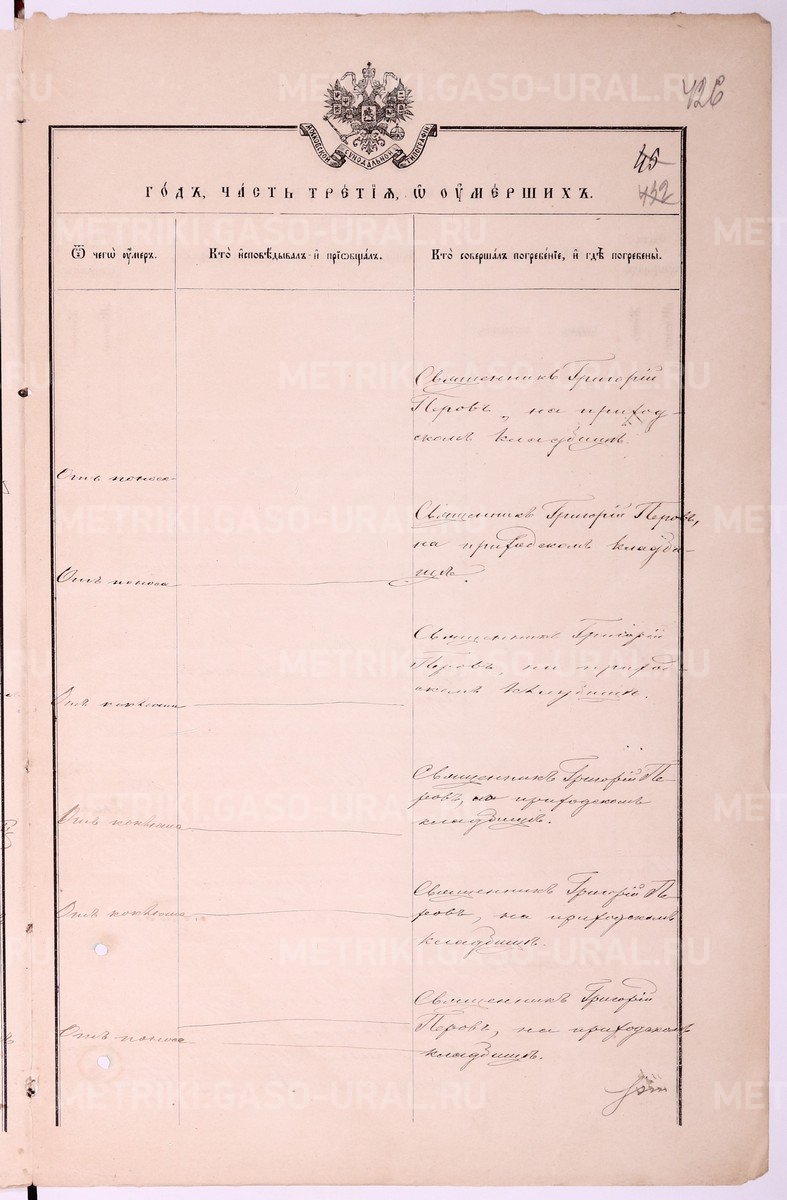 METRIKI.GASO-URAL.RU
426
МОСКОВСКОЙ СѴНОДАЛЬНОЙ ТИПОГРАФІИ
45
432
ГО́ДЪ, ЧА́СТЬ ТРЕ́ТІЯ, Ѡ ОУМЕ́РШИХЪ.
Ѿ чегѡ̀ оу҆́меръ.
Кто̀ и҆сповѣ́дывалъ и҆ прїѡбща́лъ.
Кто̀ соверша́лъ погребе́нїе, и҆ гдѣ̀ погребены̀.
Священникъ Григорій
Перовъ, на приход-
скомъ кладбищѣ.
Отъ поноса
Священникъ Григорій Перовъ,
на приходскомъ кладби-
щѣ.
Отъ поноса
Священникъ Григорій
Перовъ, на приход-
скомъ кладбищѣ.
Отъ коклюша
Священникъ Григорій Пе
ровъ, на приходскомъ
кладбищѣ.
Отъ коклюша
Священникъ Григорій Пе
ровъ, на приходскомъ
кладбищѣ.
Отъ коклюша
Священникъ Григорій
Перовъ, на приходскомъ
кладбищѣ.
Отъ поноса